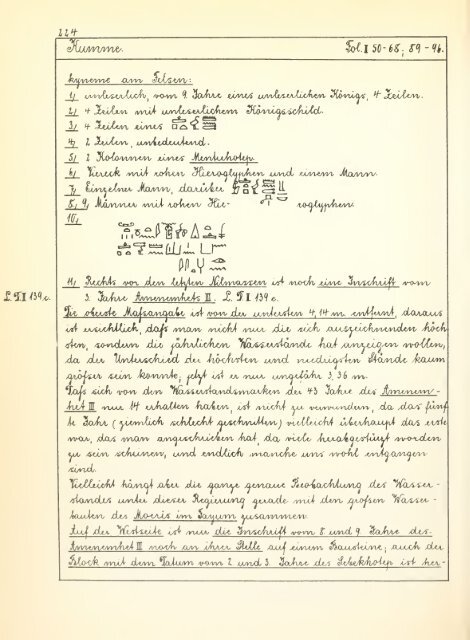 224
Kumme. Fol. II 50-68; 89-96.
kyneme am Felsen:
1, unleserlich, vom 9. Jahre eines unleserlichen Königs, 4 Zeilen.
2, 4 Zeilen mit unleserlichem Königsschild.
3, 4 Zeilen eines
4, 2 Zeilen, unbedeutend.
5, 2 Kolonnen eines Mentuhotep
6, Viereck mit rohen Hieroglyphen und einem Mann
7, Einzelner Mann, darüber
8, 9, Männer mit rohen Hie- roglyphen.
10,
11, Rechts vor den letzten Nilmassen ist noch eine Inschrift vom
L. D. II 139 c. 3. Jahre Amenemhets II. L. D. II 139 c.
Die oberste Maßangabe ist von der untersten 4,14 m. entfernt, daraus
ist ersichtlich, daß man nicht nur die sich auszeichnenden höch
sten, sondern die jährlichen Wasserstände hat anzeigen wollen,
da der Unterschied der höchsten und niedrigsten Stände kaum
größer sein konnte, jetzt ist er nur ungefähr 3,36 m.
Daß sich von den Wasserstandsmarken der 43 Jahre des Amenem-
het III nur 14 erhalten haben, ist nicht zu verwundern, da das fünf
te Jahr (ziemlich schlecht geschnitten) vielleicht überhaupt das erste
war, das man angeschrieben hat, da viele herabgestürzt worden
zu sein scheinen, und endlich manche uns wohl entgangen
sind.
Vielleicht hängt aber die ganze genaue Beobachtung des Wasser-
standes unter dieser Regierung gerade mit den großen Wasser-
bauten des Moeris im Fayum zusammen
Auf der Westseite ist nur die Inschrift vom 8 und 9. Jahre des
Amenemhet III noch an ihrer Stelle auf einem Bausteine; auch der
Block mit dem Datum vom 2 und 3. Jahre des Sebekhotep ist her-